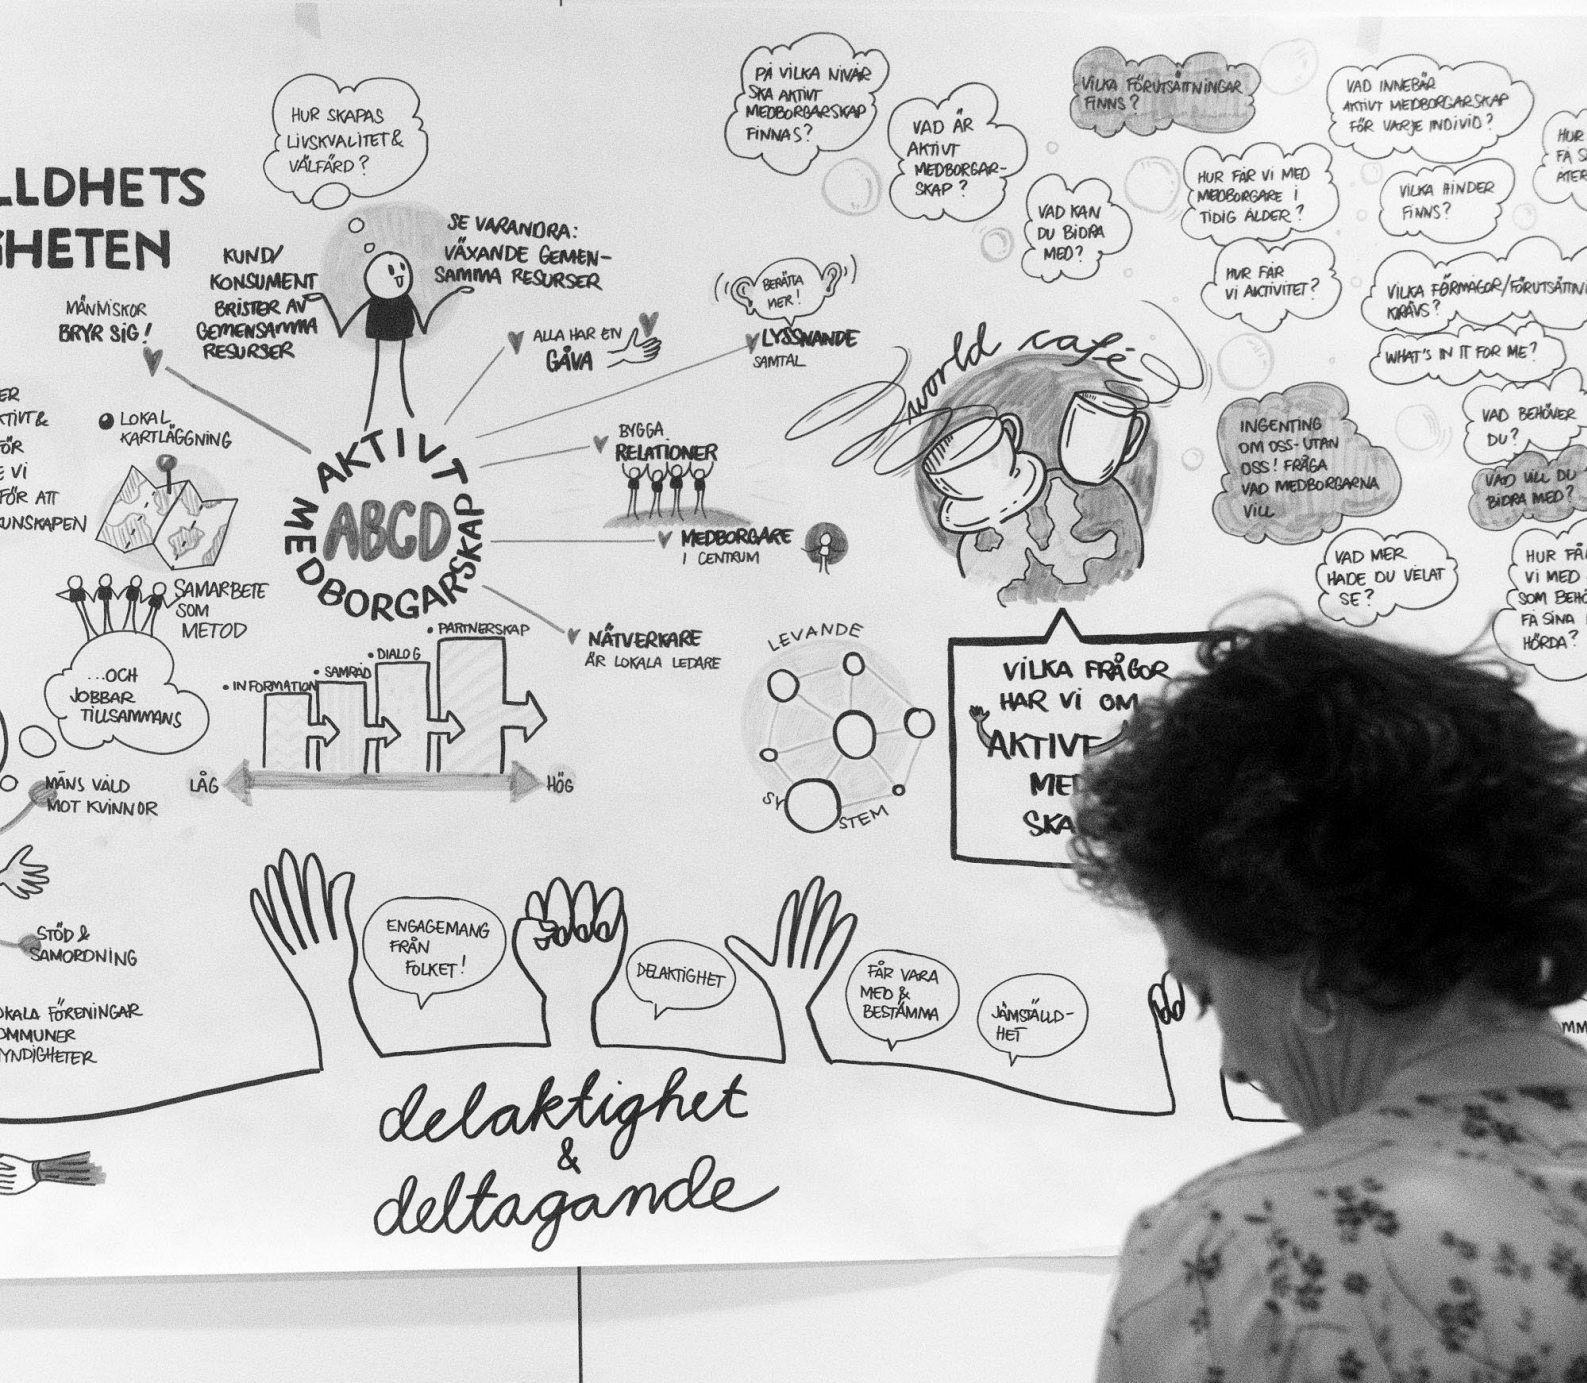 LLDHETS
GHETEN
MÄNNISKOR
BRYR SIG!
HUR SKAPAS
LIVSKVALITET &
VÄLFÄRD?
KUND/
KONSUMENT
BRISTER AV
GEMENSAMMA
RESURSER
SE VARANDRA:
VÄXANDE GEMEN-
SAMMA RESURSER
ALLA HAR EN
GÅVA
BERÄTTA
MER!
LYSSNANDE
SAMTAL
BYGGA
RELATIONER
MEDBORGARE
I CENTRUM
NÄTVERKARE
ÄR LOKALA LEDARE
AKTIVT
MEDBORGARSKAP
ABCD
ER
KTIVT &
FÖR
E VI
FÖR ATT
KUNSKAPEN
LOKAL
KARTLÄGGNING
SAMARBETE
SOM
METOD
...OCH
JOBBAR
TILLSAMMANS
• INFORMATION
• SAMRÅD
• DIALOG
• PARTNERSKAP
LÅG
HÖG
MÄNS VÅLD
MOT KVINNOR
STÖD &
SAMORDNING
OKALA FÖRENINGAR
OMMUNER
YNDIGHETER
ENGAGEMANG
FRÅN
FOLKET!
DELAKTIGHET
FÅR VARA
MED &
BESTÄMMA
JÄMSTÄLLD-
HET
delaktighet
&
deltagande
LEVANDE
SYSTEM
world café
VILKA FRÅGOR
HAR VI OM
AKTIVT
MED
SKA
PÅ VILKA NIVÅR
SKA AKTIVT
MEDBORGARSKAP
FINNAS?
VAD ÄR
AKTIVT
MEDBORGAR-
SKAP?
VAD KAN
DU BIDRA
MED?
VILKA FÖRUTSÄTTNINGAR
FINNS?
VAD INNEBÄR
AKTIVT MEDBORGARSKAP
FÖR VARJE INDIVID?
HUR FÅR VI MED
MEDBORGARE I
TIDIG ÅLDER?
VILKA HINDER
FINNS?
HUR
FÅ S
ÅTER
HUR FÅR
VI AKTIVITET?
VILKA FÖRMÅGOR/FÖRUTSÄTTNI
KRÄVS?
WHAT'S IN IT FOR ME?
INGENTING
OM OSS - UTAN
OSS! FRÅGA
VAD MEDBORGARNA
VILL
VAD BEHÖVER
DU?
VAD VILL DU
BIDRA MED?
VAD MER
HADE DU VELAT
SE?
HUR FÅ
VI MED
SOM BEHÖ
FÅ SINA
HÖRDA?